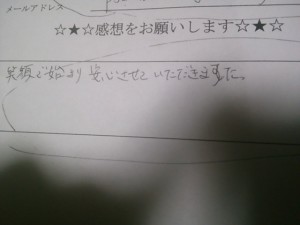 メールアドレス
☆★☆感想をお願いします☆★☆
笑顔で始まり 安心させていただきました。